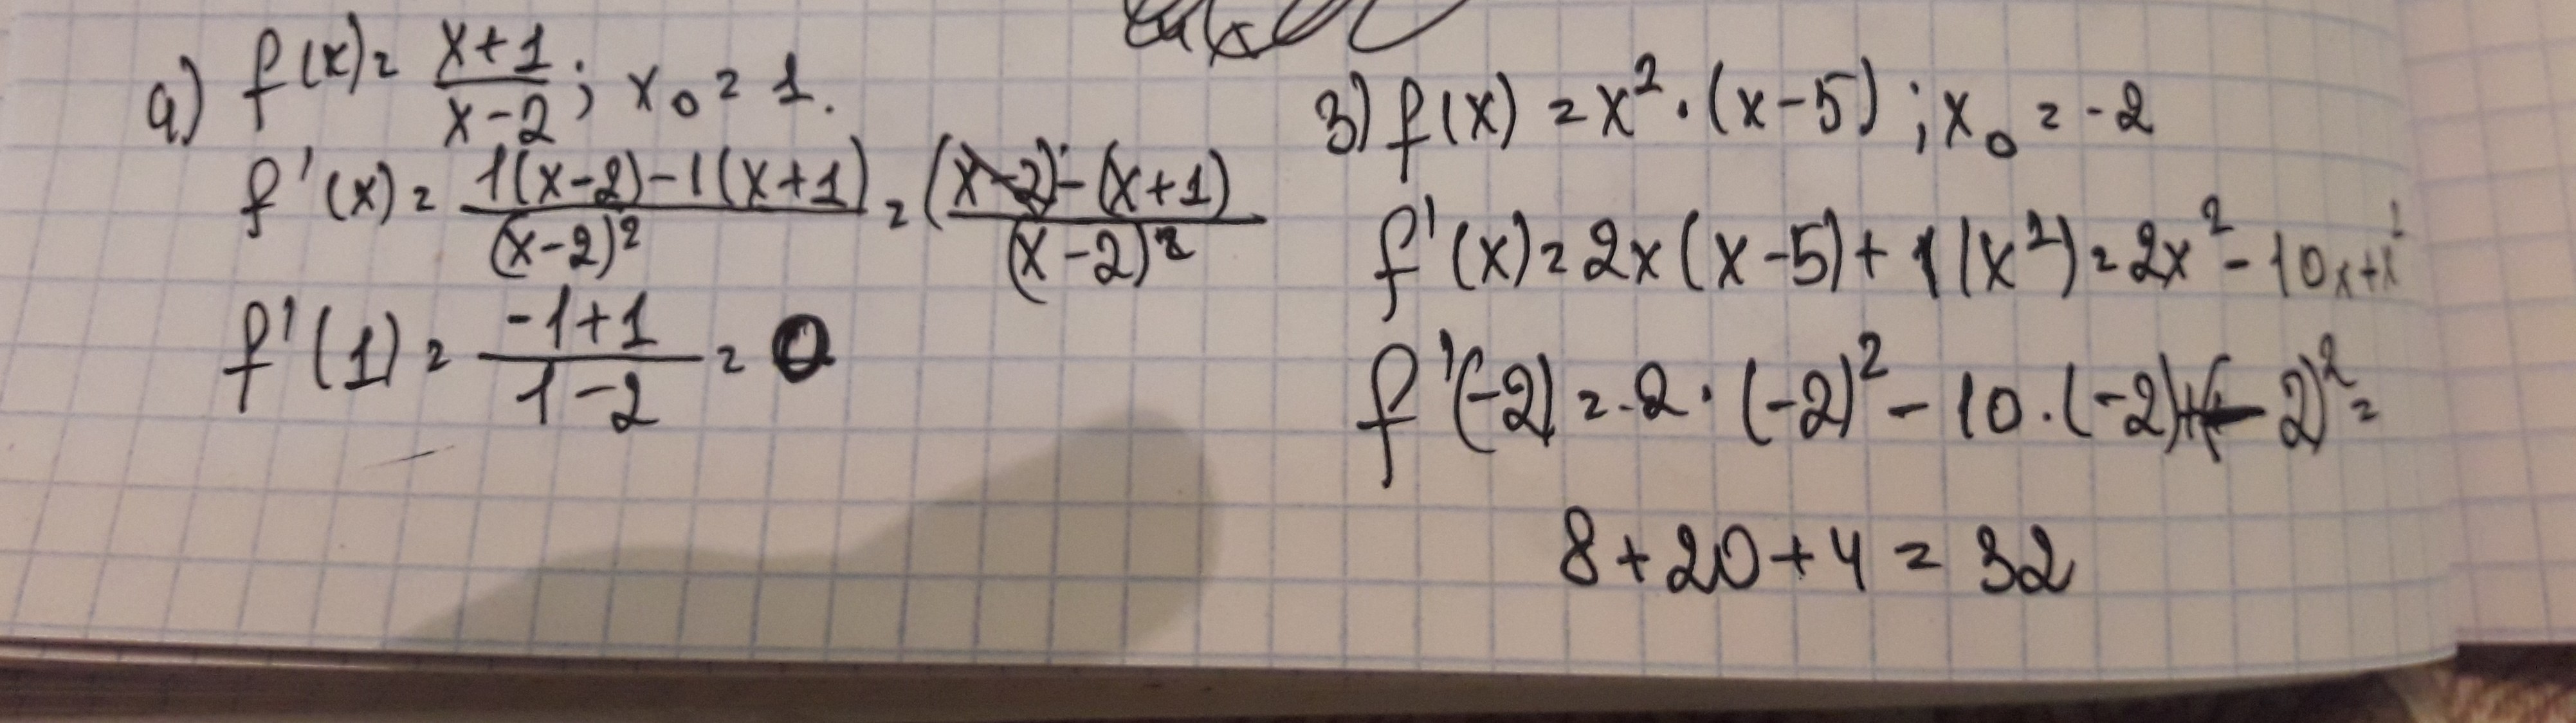 a) f(x) = (x+1)/(x-2); x₀ = 1.
f'(x) = (1(x-2)-1(x+1))/(x-2)² = ((x-2)-(x+1))/(x-2)²
f'(1) = (-1+1)/(1-2) = 0
3) f(x) = x² · (x-5); x₀ = -2
f'(x) = 2x(x-5) + 1(x²) = 2x² - 10x + x²
f'(-2) = 2 · (-2)² - 10 · (-2) + (-2)² =
8 + 20 + 4 = 32